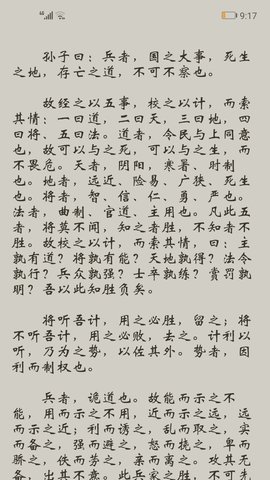 9:17
孙子曰：兵者，国之大事，死生
之地，存亡之道，不可不察也。
故经之以五事，校之以计，而索
其情：一曰道，二曰天，三曰地，四
曰将、五曰法。道者，令民与上同意
也，故可以与之死，可以与之生，而
不畏危。天者，阴阳，寒暑、时制
也。地者，远近、险易、广狭、死生
也。将者，智、信、仁、勇、严也。
法者，曲制、官道、主用也。凡此五
者，将莫不闻，知之者胜，不知者不
胜。故校之以计，而索其情，曰：主
孰有道？将孰有能？天地孰得？法令
孰行？兵众孰强？士卒孰练？赏罚孰
明？吾以此知胜负矣。
将听吾计，用之必胜，留之；将
不听吾计，用之必败，去之。计利以
听，乃为之势，以佐其外。势者，因
利而制权也。
兵者，诡道也。故能而示之不
能，用而示之不用，近而示之远，远
而示之近；利而诱之，乱而取之，实
而备之，强而避之，怒而挠之，卑而
骄之，佚而劳之，亲而离之。攻其无
备，出其不意。此兵家之胜，不可先